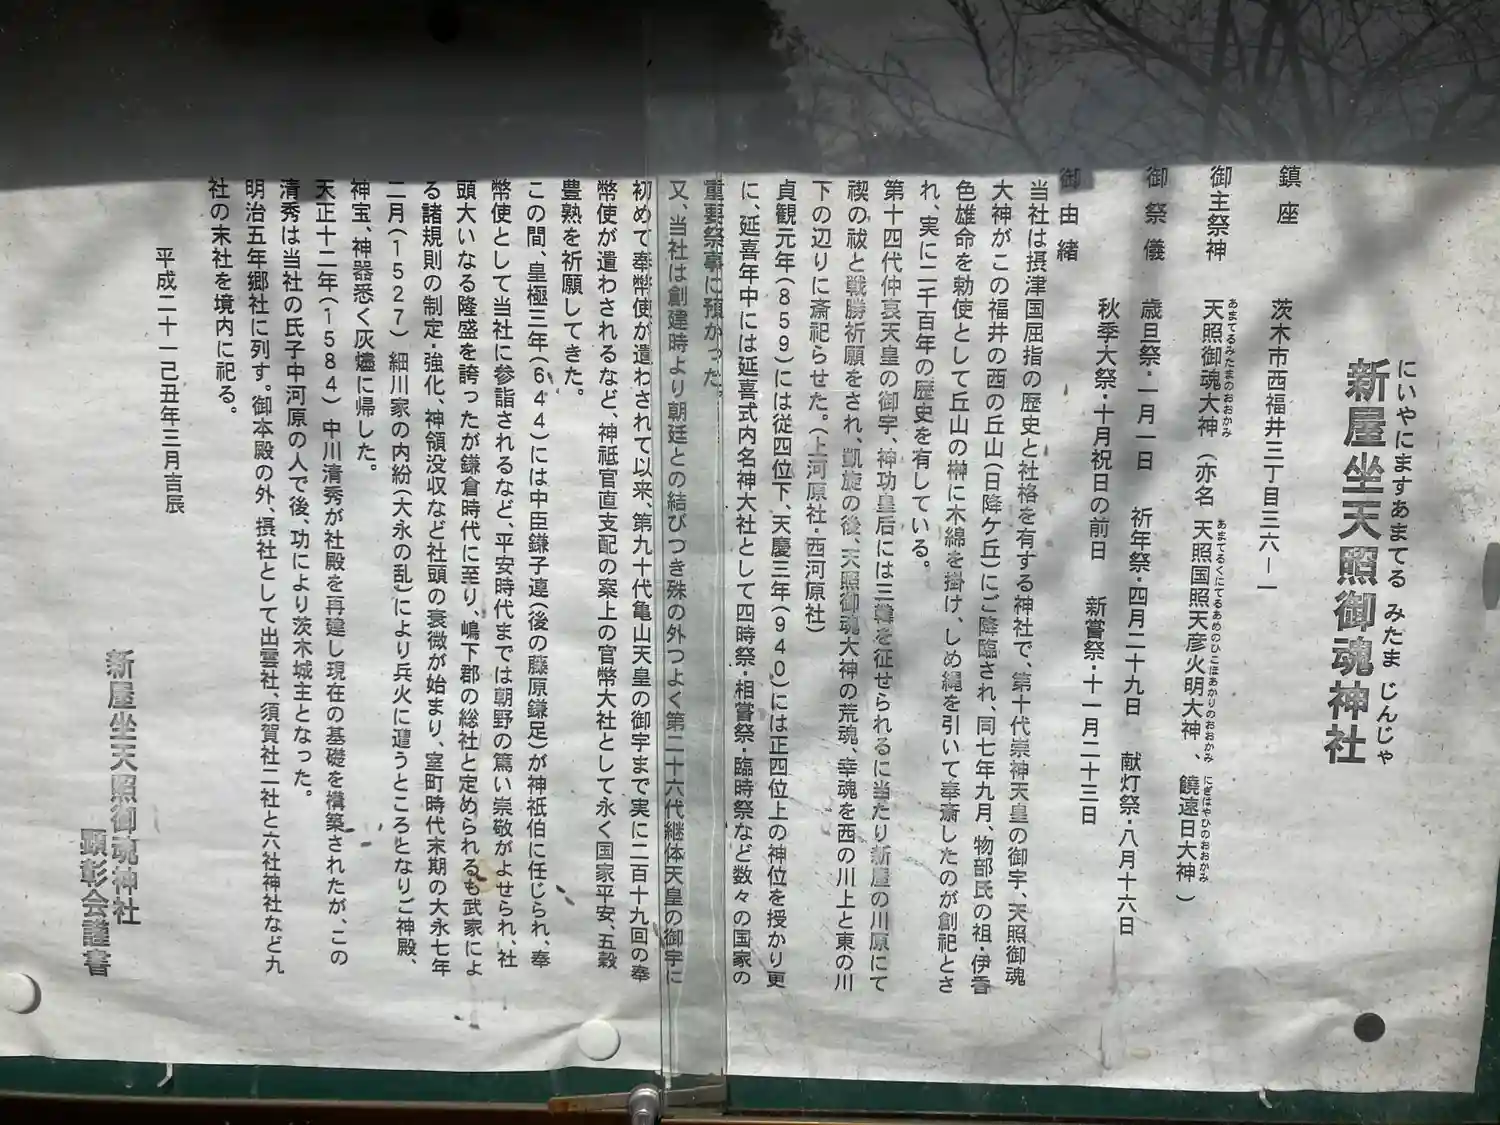 にいやにますあまてる みたま じんじゃ
新屋坐天照御魂神社
鎮座 茨木市西福井三丁目三六ー一
御主祭神 天照御魂大神(亦名 天照国照天彦火明大神、饒速日大神)
あまてるみたまのおおかみ あまてるくにてるあめのひこほあかりのおおかみ にぎはやひのおおかみ
御祭儀 歳旦祭・一月一日 祈年祭・四月二十九日 献灯祭・八月十六日
秋季大祭・十月祝日の前日 新嘗祭・十一月二十三日
御由緒
当社は摂津国屈指の歴史と社格を有する神社で、第十代崇神天皇の御宇、天照御魂
大神がこの福井の西の丘山(日降ケ丘)にご降臨され、同七年九月、物部氏の祖・伊香
色雄命を勅使として丘山の榊に木綿を掛け、しめ縄を引いて奉斎したのが創祀とさ
れ、実に二千百年の歴史を有している。
第十四代仲哀天皇の御宇、神功皇后には三韓を征せられるに当たり新屋の川原にて
禊の祓と戦勝祈願をされ、凱旋の後、天照御魂大神の荒魂、幸魂を西の川上と東の川
下の辺りに斎祀らせた。(上河原社・西河原社)
貞観元年(859)には従四位下、天慶三年(940)には正四位上の神位を授かり更
に、延喜年中には延喜式内名神大社として四時祭・相嘗祭・臨時祭など数々の国家の
重要祭事に預かった。
又、当社は創建時より朝廷との結びつき殊の外つよく第二十六代継体天皇の御宇に
初めて奉幣使が遣わされて以来、第九十代亀山天皇の御宇まで実に二百十九回の奉
幣使が遣わされるなど、神祗官直支配の案上の官幣大社として永く国家平安、五穀
豊熟を祈願してきた。
この間、皇極三年(644)には中臣鎌子連(後の藤原鎌足)が神祇伯に任じられ、奉
幣使として当社に参詣されるなど、平安時代までは朝野の篤い崇敬がよせられ、社
頭大いなる隆盛を誇ったが鎌倉時代に至り、嶋下郡の総社と定められるも武家によ
る諸規則の制定・強化、神領没収など社頭の衰微が始まり、室町時代末期の大永七年
二月(1527) 細川家の内紛(大永の乱)により兵火に遭うところとなりご神殿、
神宝、神器悉く灰燼に帰した。
天正十二年(1584) 中川清秀が社殿を再建し現在の基礎を構築されたが、この
清秀は当社の氏子中河原の人で後、功により茨木城主となった。
明治五年郷社に列す。御本殿の外、摂社として出雲社、須賀社二社と六社神社など九
社の末社を境内に祀る。
平成二十一己丑年三月吉辰
新屋坐天照御魂神社
顕彰会謹書